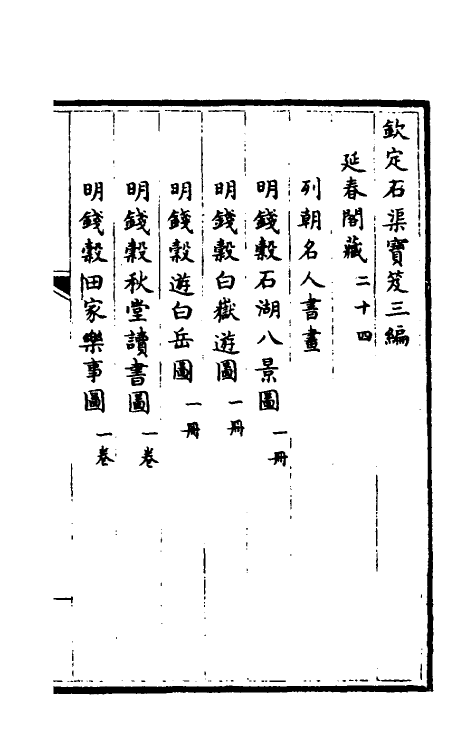 欽定石渠寶笈三編
延春閣藏二十四
列朝名人書畫
明錢穀石湖八景圖一冊
明錢穀白嶽遊圖一冊
明錢穀遊白岳圖一冊
明錢穀秋堂讀書圖一卷
明錢穀田家樂事圖一卷